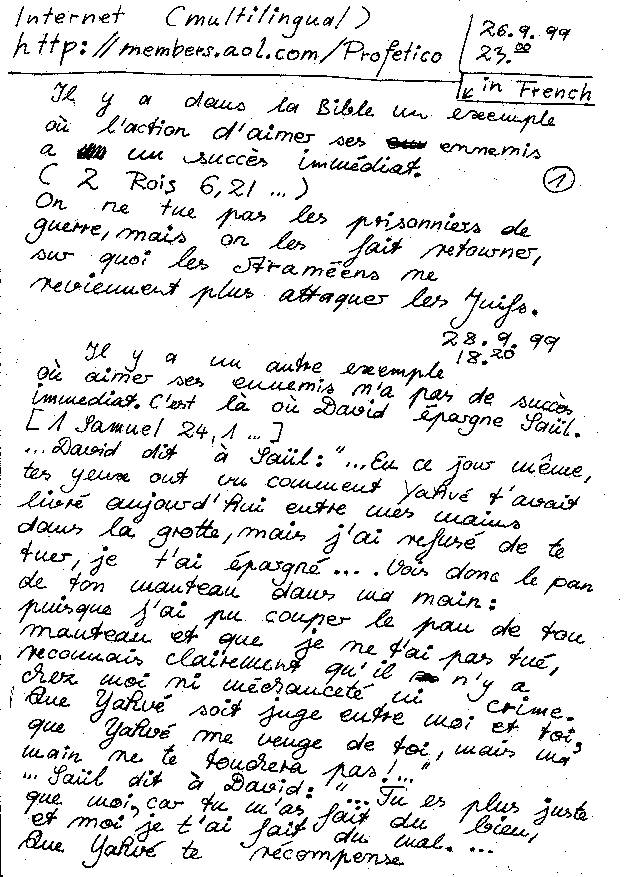 Internet (multilingual)
http://members.aol.com/Profetico
26.9.99
23.00
in French
Il y a dans la Bible un exemple
où l'action d'aimer ses ennemis
a un succès immédiat.
(2 Rois 6,21...)
1
On ne tue pas les prisonniers de
guerre, mais on les fait retourner,
sur quoi les Araméens ne
reviennent plus attaquer les Juifs.
28.9.99
18.20
Il y a un autre exemple
où aimer ses ennemis n'a pas de succès
immediat. C'est là où David épargne Saül.
[1 Samuel 24,1...]
...David dit à Saül: "...En ce jour même,
tes yeux ont vu comment Yahvé t'avait
livré aujourd'hui entre mes mains
dans la grotte, mais j'ai refusé de te
tuer, je t'ai épargné.... Vois donc le pan
de ton manteau dans ma main:
puisque j'ai pu couper le pan de ton
manteau et que je ne t'ai pas tué,
reconnais clairement qu'il n'y a
chez moi ni méchanceté ni crime.
Que Yahvé soit juge entre moi et toi,
que Yahvé me venge de toi, mais ma
main ne te touchera pas!..."
... Saül dit à David: "...Tu es plus juste
que moi, car tu m'as fait du bien,
et moi je t'ai fait du mal. ...
Que Yahvé te récompense